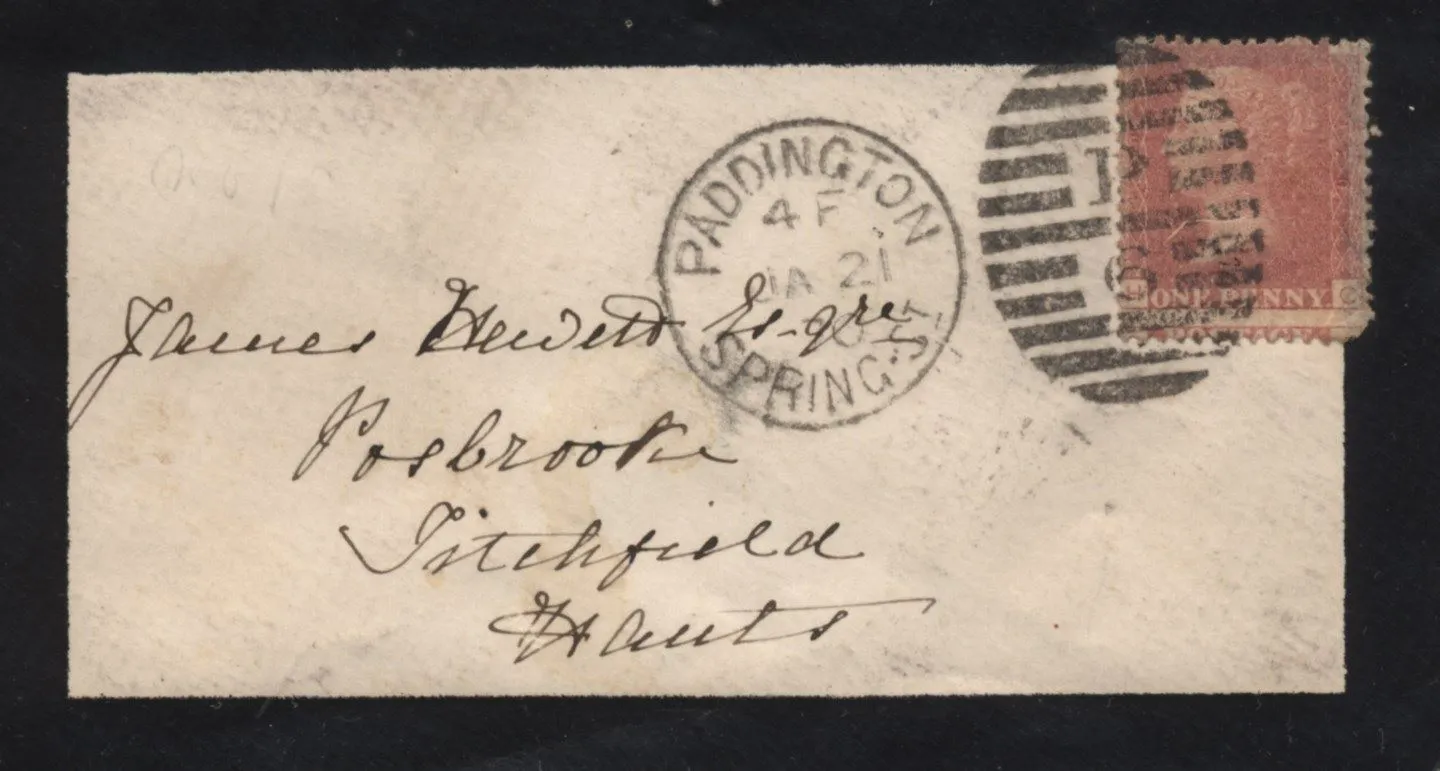 PADDINGTON
4 F
JA 21
SPRING.ST
P
6
H ONE PENNY C
POSTAGE
James Hewett Esqre
Posbrooke
Titchfield
Hants